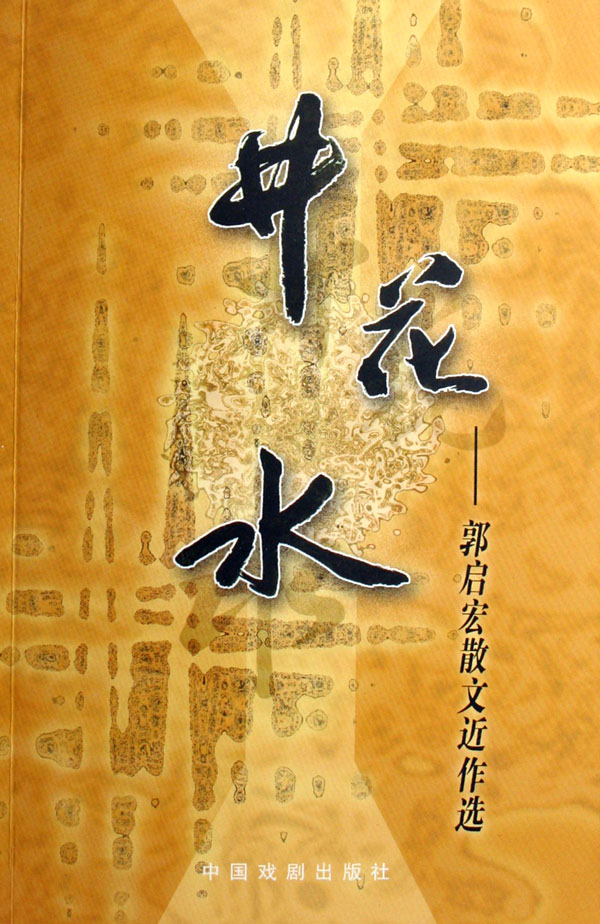 井花水
——郭启宏散文近作选
中国戏剧出版社